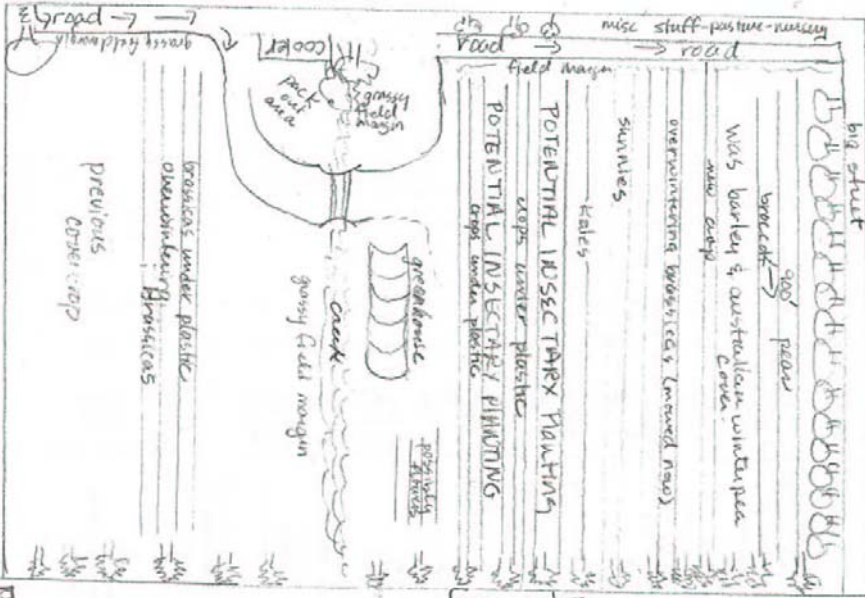 road
grassy field margin
cooler
pack out area
grassy field margin
road
misc stuff-pasture-nursery
road
field margin
big street
900' peas
broccoli
was barley & austrailian winterpea cover
new crop
overwintering brassicas (mowed now)
sunnies
Kales
POTENTIAL INSECTARY Planting
crops under plastic
POTENTIAL INSECTARY PLANTING
crops under plastic
greenhouse
possibly
creek
grassy field margin
brassicas under plastic
overwintering brassicas
previous covercrop